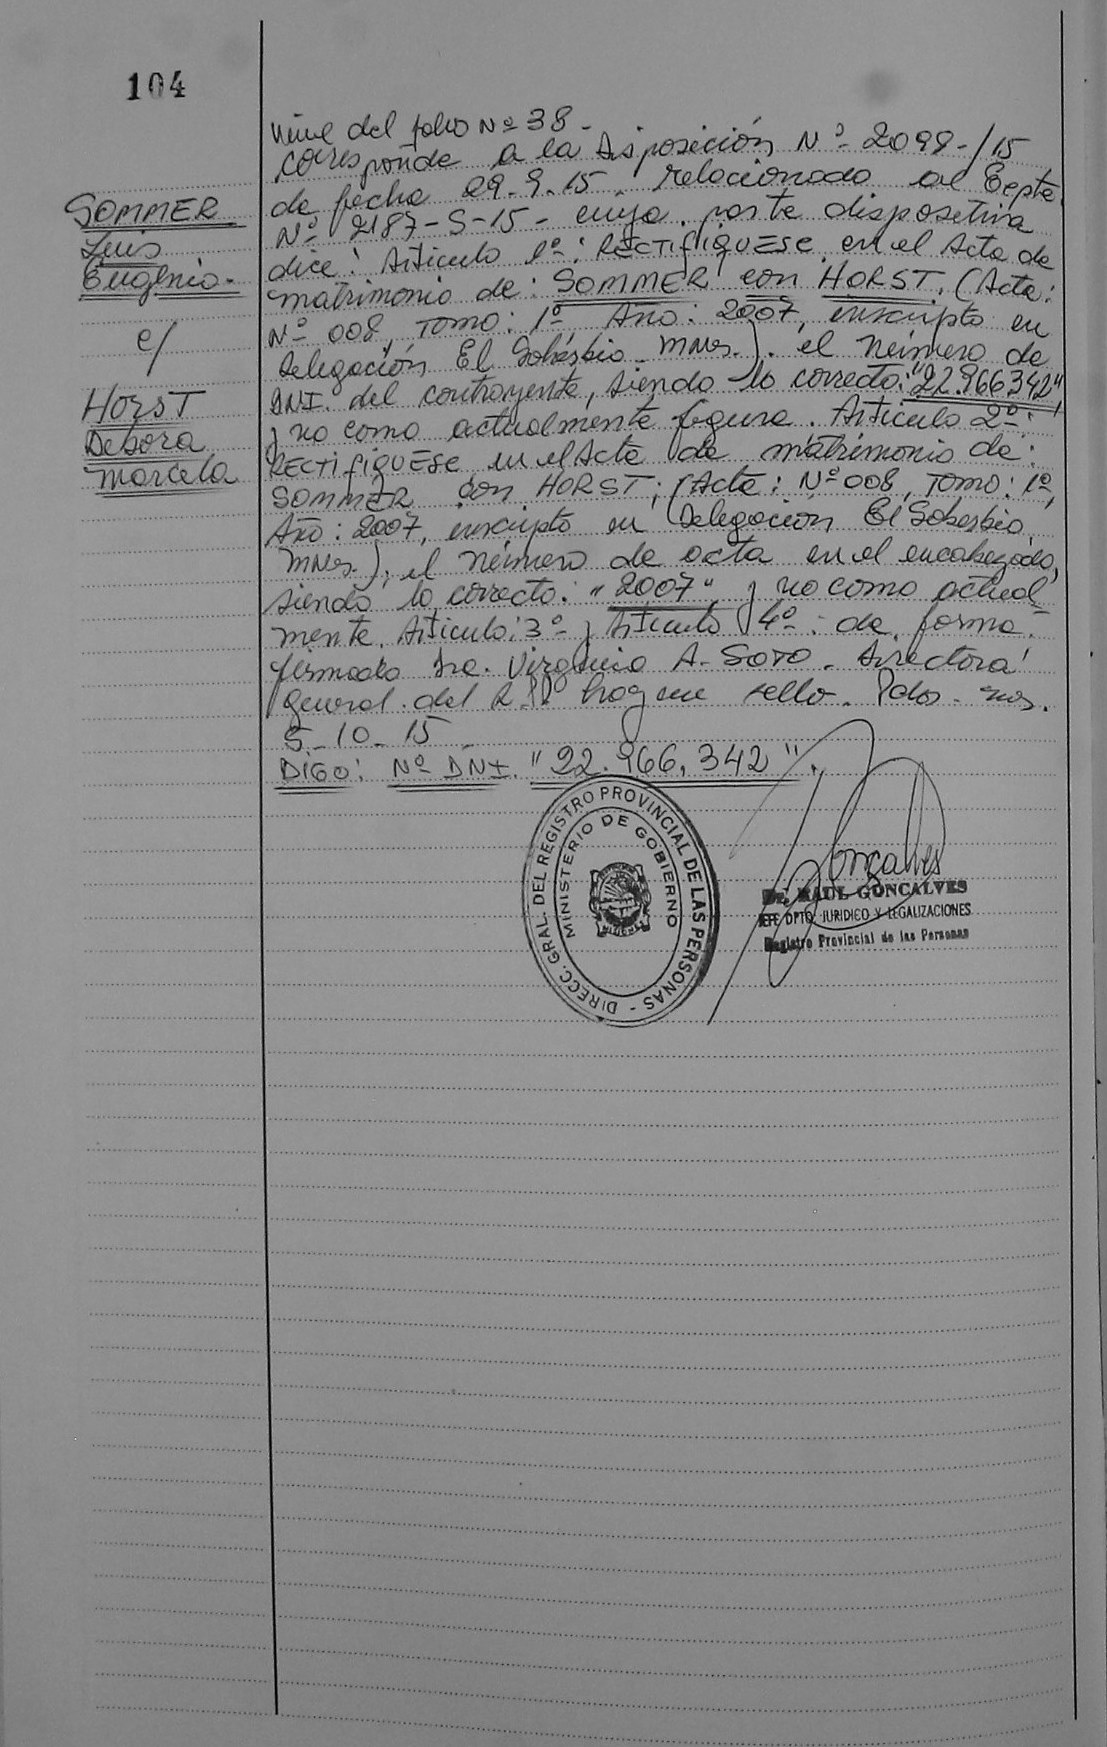 104
SOMMER
Luis
Eugenio.-
c/
Horst
Debora
Marcela
viene del folio Nº 38 -
Corresponde a la Disposición Nº 2098-/15
de fecha 29.9.15. relacionado al Expte.
Nº 2187-S-15- cuya parte dispositiva
dice: Artículo 1º: RECTIFIQUESE en el Acta de
matrimonio de: SOMMER con HORST. (Acta:
Nº 008, Tomo: 1º Año: 2007, inscripto en
Delegación El Soberbio - Mnes.). el número de
DNI. del contrayente, siendo lo correcto: "22.966342",
y no como actualmente figura. Artículo 2º:
RECTIFIQUESE en el Acta de matrimonio de:
SOMMER con HORST; (Acta: Nº 008, Tomo: 1º,
Año: 2007, inscripto en Delegación El Soberbio,
Mnes.); el número de acta en el encabezado,
siendo lo correcto: "2007", y no como actual-
mente. Artículo: 3º y Artículo 4º: de forma.
firmado Dra. Virginia A. SOTO. Directora
General del R.P.P. hay un sello. Pdas. Mnes.
5-10-15-
DIGO: Nº DNI. "22.966.342".
DIRECC. GRAL. DEL REGISTRO PROVINCIAL DE LAS PERSONAS -
MINISTERIO DE GOBIERNO
Gonçalves
Dr. RAUL GONCALVES
JEFE DPTO. JURIDICO Y LEGALIZACIONES
Registro Provincial de las Personas